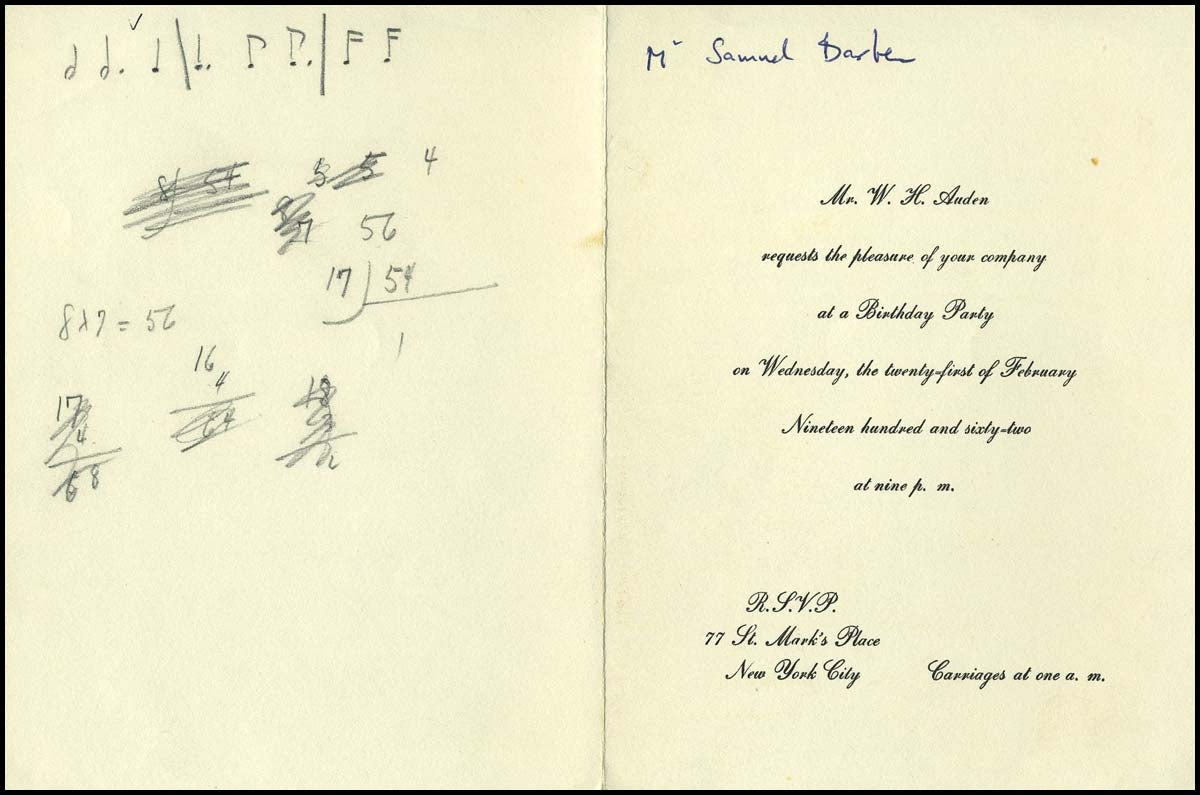 8) 54
5 5 4
8
7 56
17 ) 54
1
8x7 = 56
16
4
64
17
4
68
18
Mr Samuel Barber
Mr. W. H. Auden
requests the pleasure of your company
at a Birthday Party
on Wednesday, the twenty=first of February
Nineteen hundred and sixty=two
at nine p. m.
R.S.V.P.
77 St. Mark's Place
New York City
Carriages at one a. m.